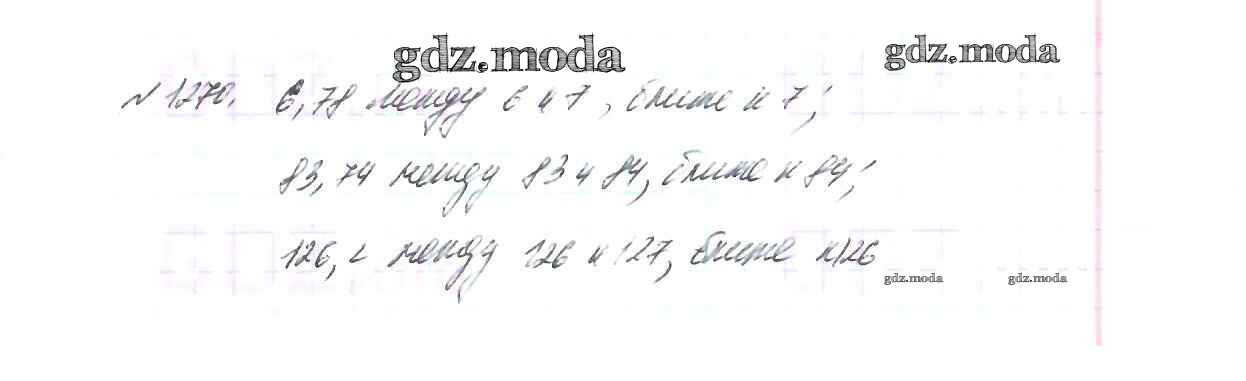 gdz.moda gdz.moda
№1270. 6,78 между 6 и 7, ближе к 7;
83,74 между 83 и 84, ближе к 84;
126,2 между 126 и 127, ближе к 126
gdz.moda gdz.moda